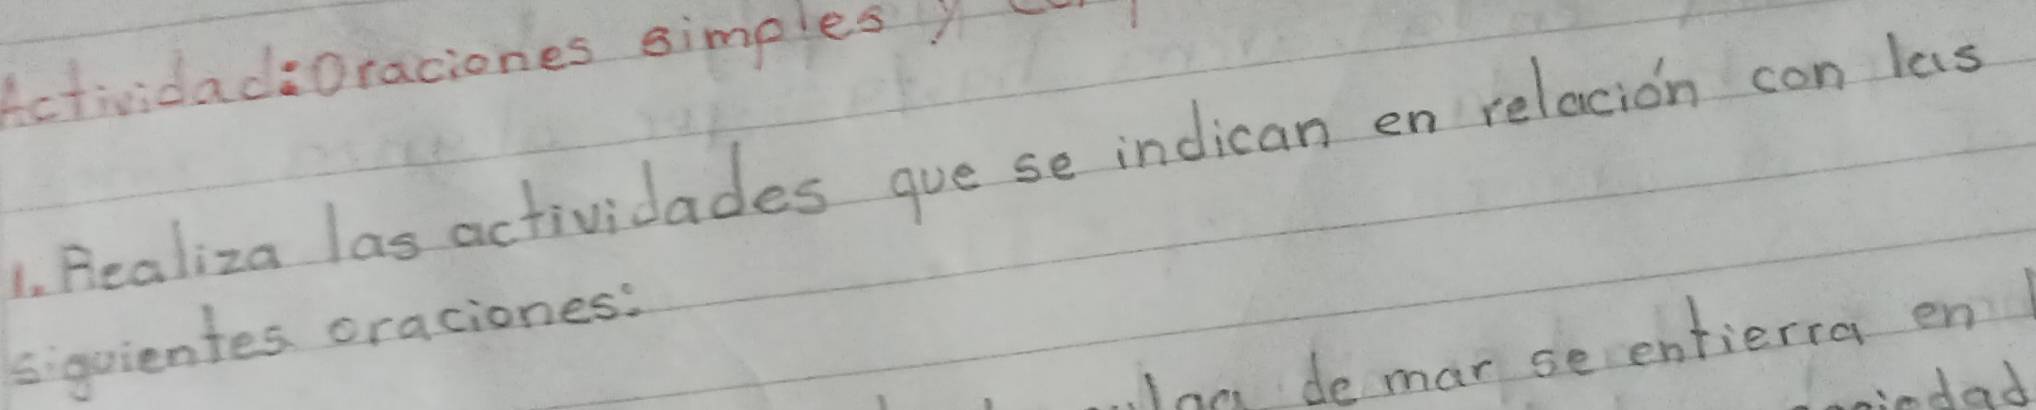 Actividad: Oraciones simples y
1. Realiza las actividades que se indican en relación con las
siguientes oraciones:
de mar se entierra en